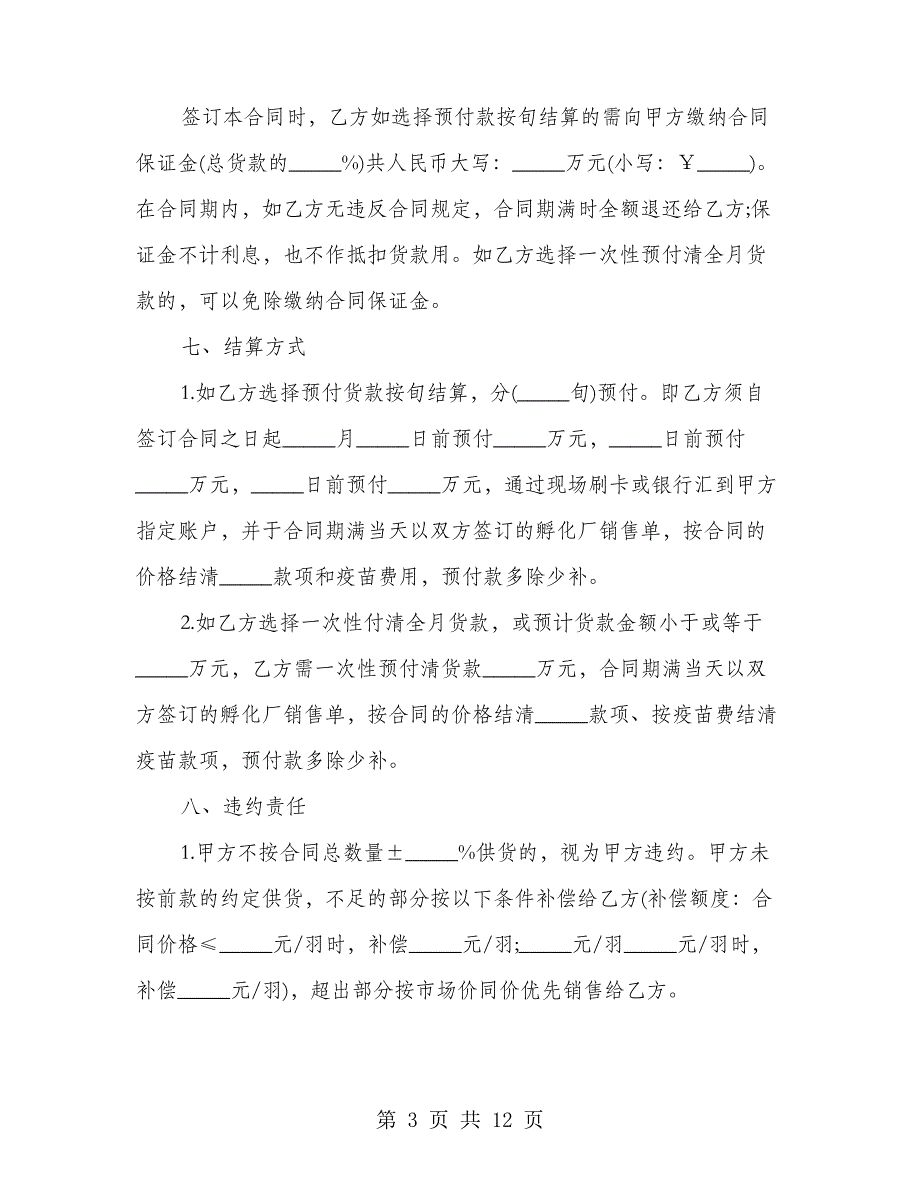 签订本合同时，乙方如选择预付款按旬结算的需向甲方缴纳合同
保证金(总货款的_____%)共人民币大写：_____万元(小写：￥_____)。
在合同期内，如乙方无违反合同规定，合同期满时全额退还给乙方;保
证金不计利息，也不作抵扣货款用。如乙方选择一次性预付清全月货
款的，可以免除缴纳合同保证金。
七、结算方式
1.如乙方选择预付货款按旬结算，分(_____旬)预付。即乙方须自
签订合同之日起_____月_____日前预付_____万元，_____日前预付
_____万元，_____日前预付_____万元，通过现场刷卡或银行汇到甲方
指定账户，并于合同期满当天以双方签订的孵化厂销售单，按合同的
价格结清_____款项和疫苗费用，预付款多除少补。
2.如乙方选择一次性付清全月货款，或预计货款金额小于或等于
_____万元，乙方需一次性预付清货款_____万元，合同期满当天以双
方签订的孵化厂销售单，按合同的价格结清_____款项、按疫苗费结清
疫苗款项，预付款多除少补。
八、违约责任
1.甲方不按合同总数量±_____%供货的，视为甲方违约。甲方未
按前款的约定供货，不足的部分按以下条件补偿给乙方(补偿额度：合
同价格≤_____元/羽时，补偿_____元/羽;_____元/羽_____元/羽时，
补偿_____元/羽)，超出部分按市场价同价优先销售给乙方。
第 3 页 共 12 页